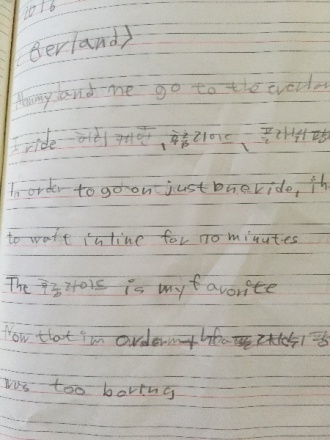 2016
Berland>
Mommy and me go to the everlan
I ride 허리케인, 후룸라이드, 플라쉬팡
In order to go on just bne ride, ih
to wait in line for 70 minutes
The 후룸라이드 is my favorite
Now that im order
was too boring